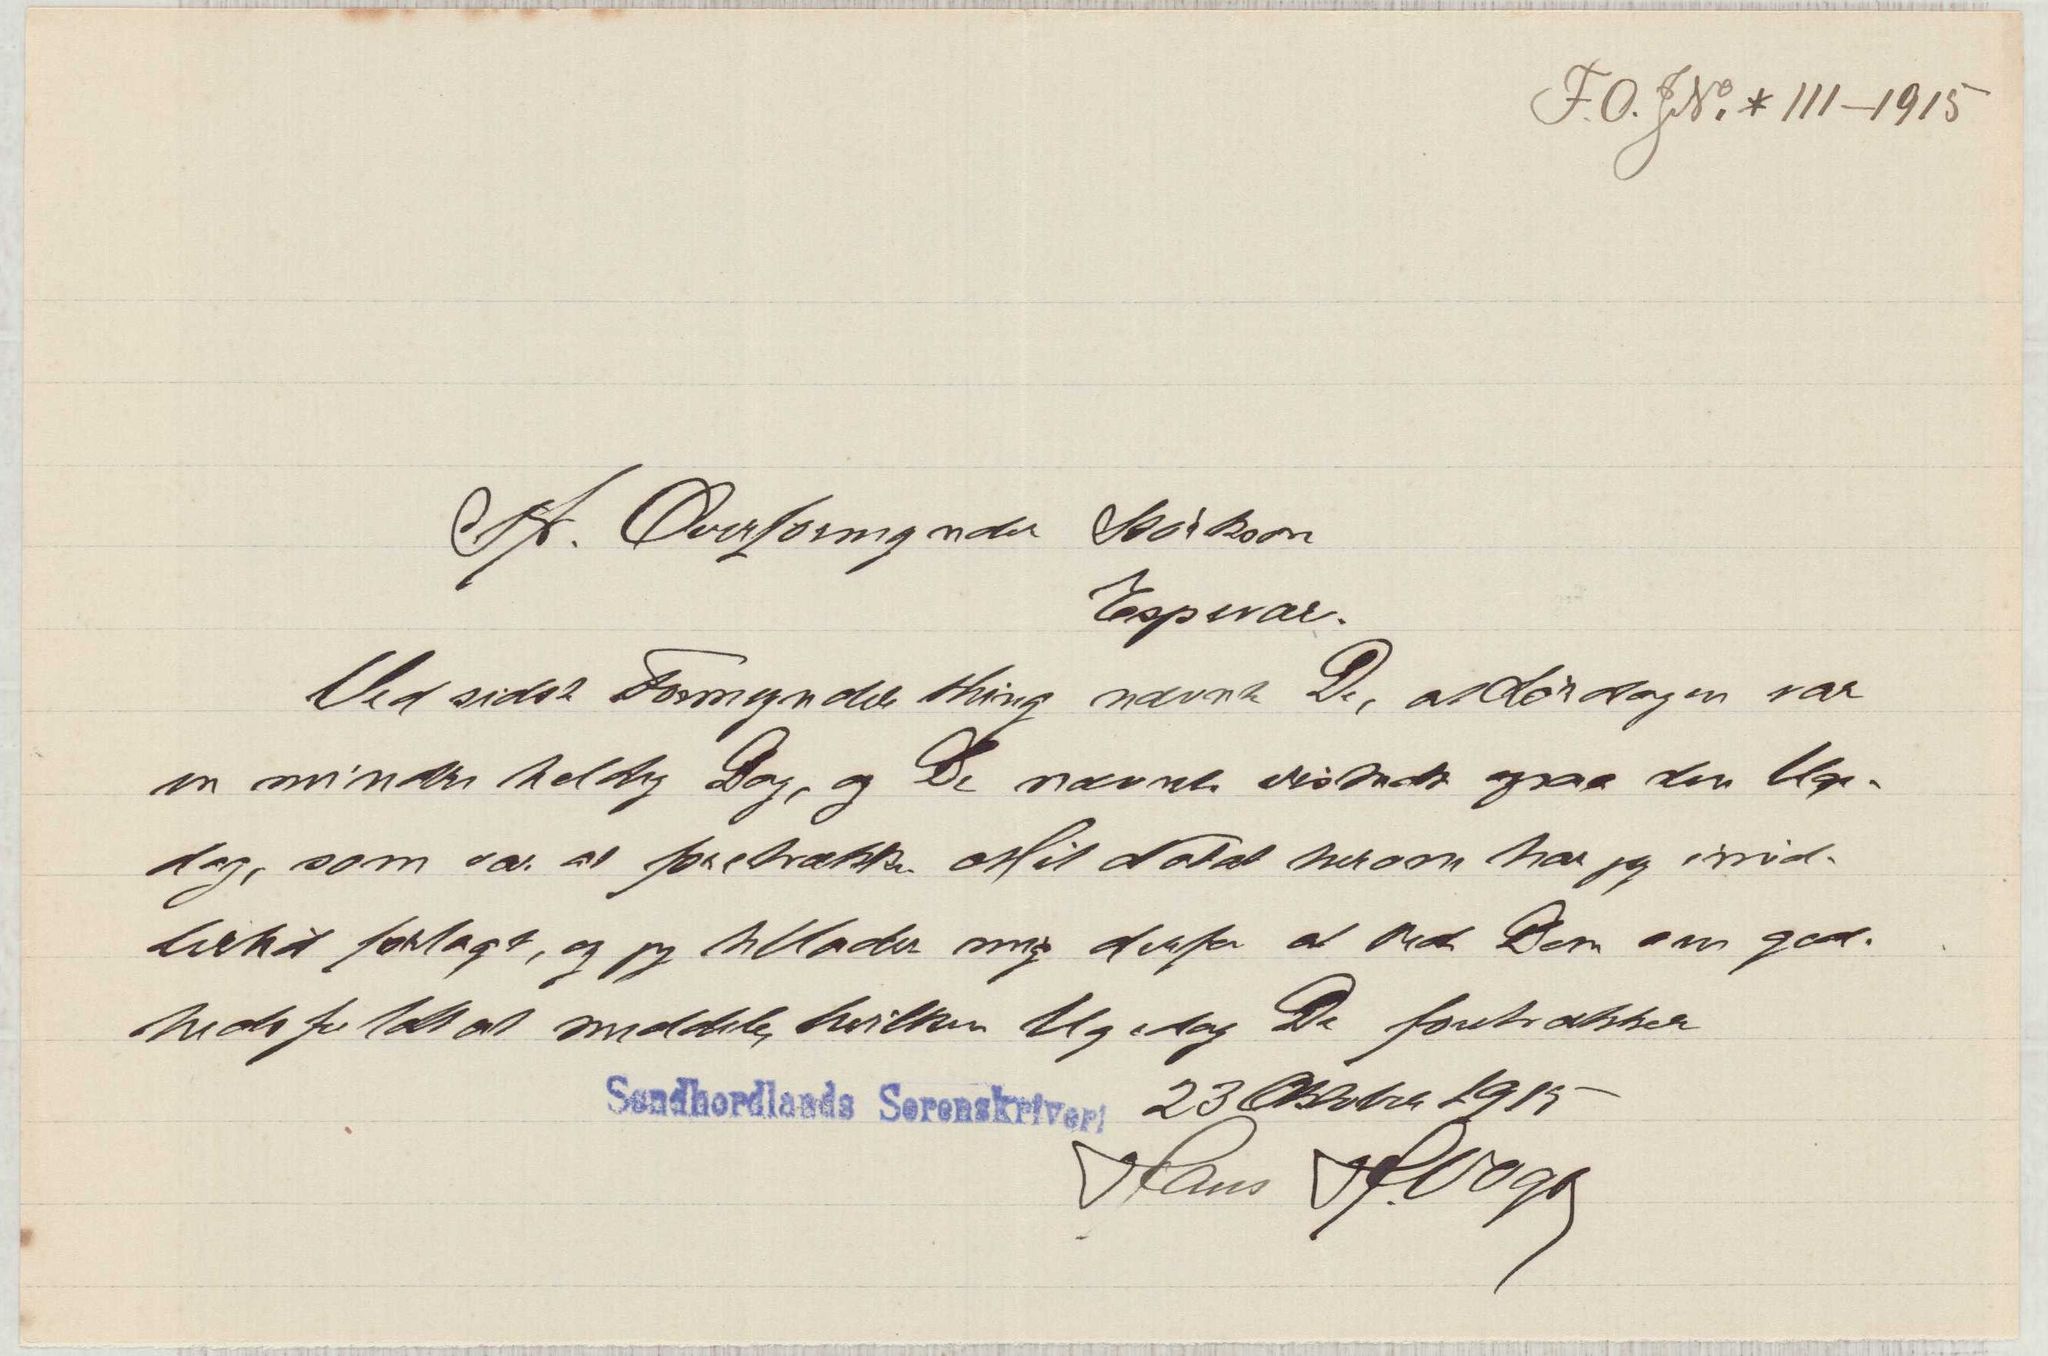 F.O. JNo. * 111-1915
Hr. Overformynder Størkson
Espevær.
Ved sidste Formynderthing nævnte De, at Lørdagen var
en mindre heldig Dag, og De nævnte vistnok ogsaa den Uge-
dag, som var at foretrække. Mit Notat herom har jeg imid-
lertid forlagt, og jeg tillader mig derfor at bede Dem om god-
hedsfuldt at meddele, hvilken Ugedag De foretrækker
Søndhordlands Sorenskriveri 23 Oktober 1915
Hans H. Vogt